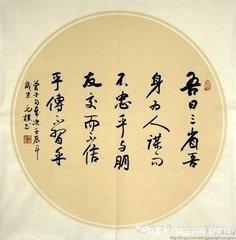 吾日三省吾
身為人謀而
不忠乎与朋
友交而不信
乎傳不習乎
曾子句歲次壬辰年